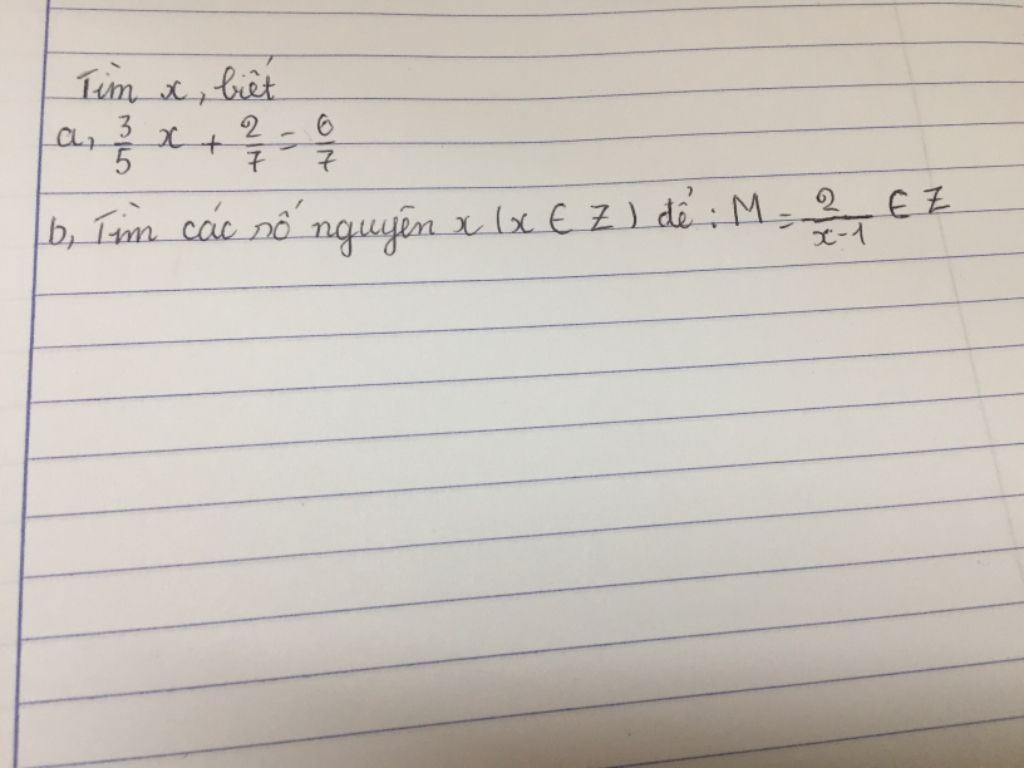 Tìm x, biết
a, 3/5 x + 2/7 = 6/7
b, Tìm các số nguyên x (x ∈ Z) để : M = 2/(x-1) ∈ Z